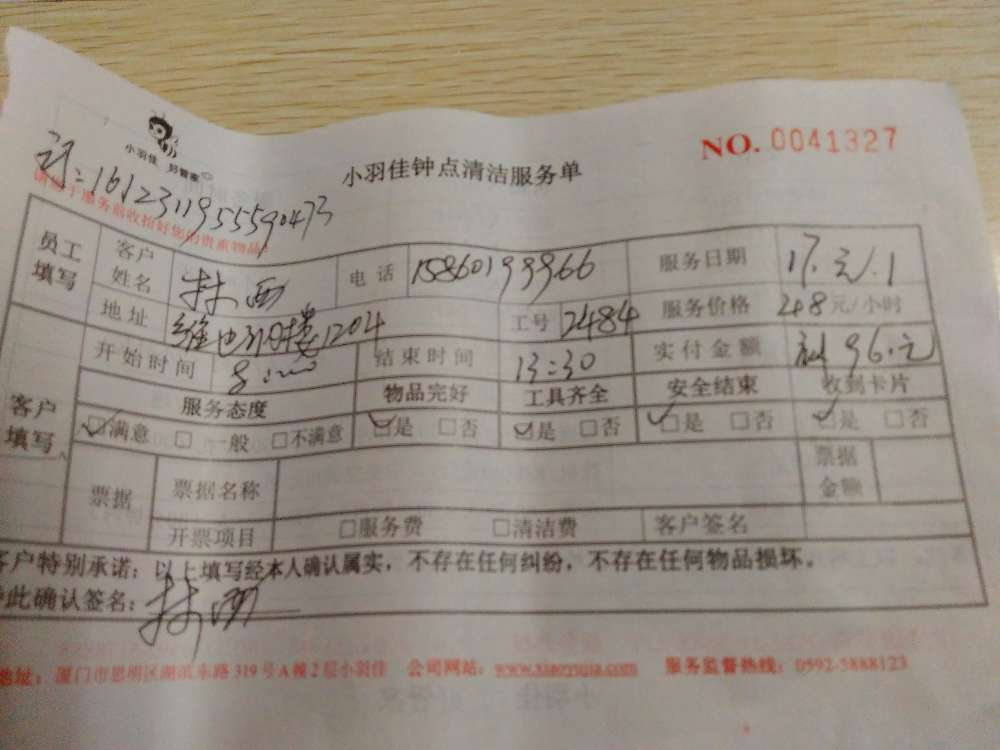 小羽佳 好管家
NO. 0041327
小羽佳钟点清洁服务单
1612311955590473
请您于服务前收拾好您的贵重物品!
员工填写 客户姓名 林西 电话 15860199966 服务日期 17.元.1
地址 1204 工号 2484 服务价格 248元/小时
开始时间 8:00 结束时间 13:30 实付金额 96.元
客户填写 服务态度 物品完好 工具齐全 安全结束 收到卡片
☑满意 □一般 □不满意 ☑是 □否 ☑是 □否 ☑是 □否 ☑是 □否
票据 票据名称 票据金额
开票项目 □服务费 □清洁费 客户签名
客户特别承诺：以上填写经本人确认属实，不存在任何纠纷，不存在任何物品损坏。
此确认签名：林西
地址：厦门市思明区湖滨东路319号A幢2层小羽佳 公司网站：www.xiaoyujia.com 服务监督热线：0592-5888123